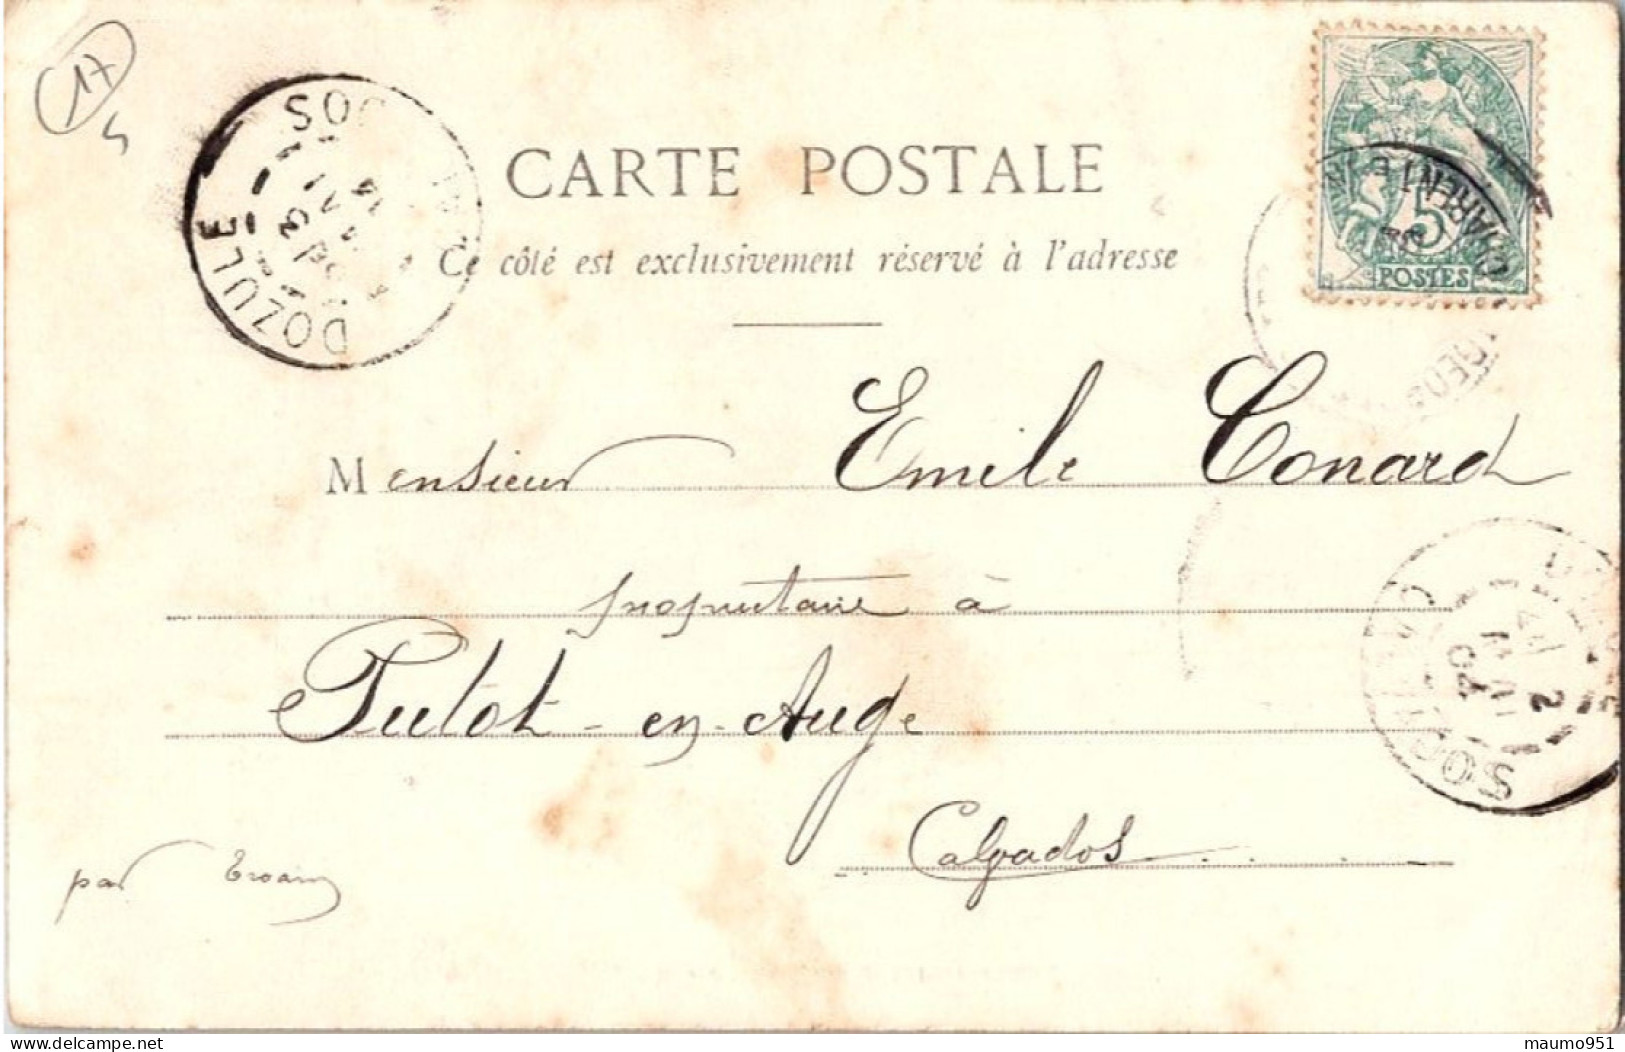 17
CARTE POSTALE
Ce côté est exclusivement réservé à l'adresse
5
POSTES
CHARENTE
DOZULE
Monsieur Emile Conard
propriétaire à
Putot-en-Auge
Calvados
par Troarn
04
maumo951